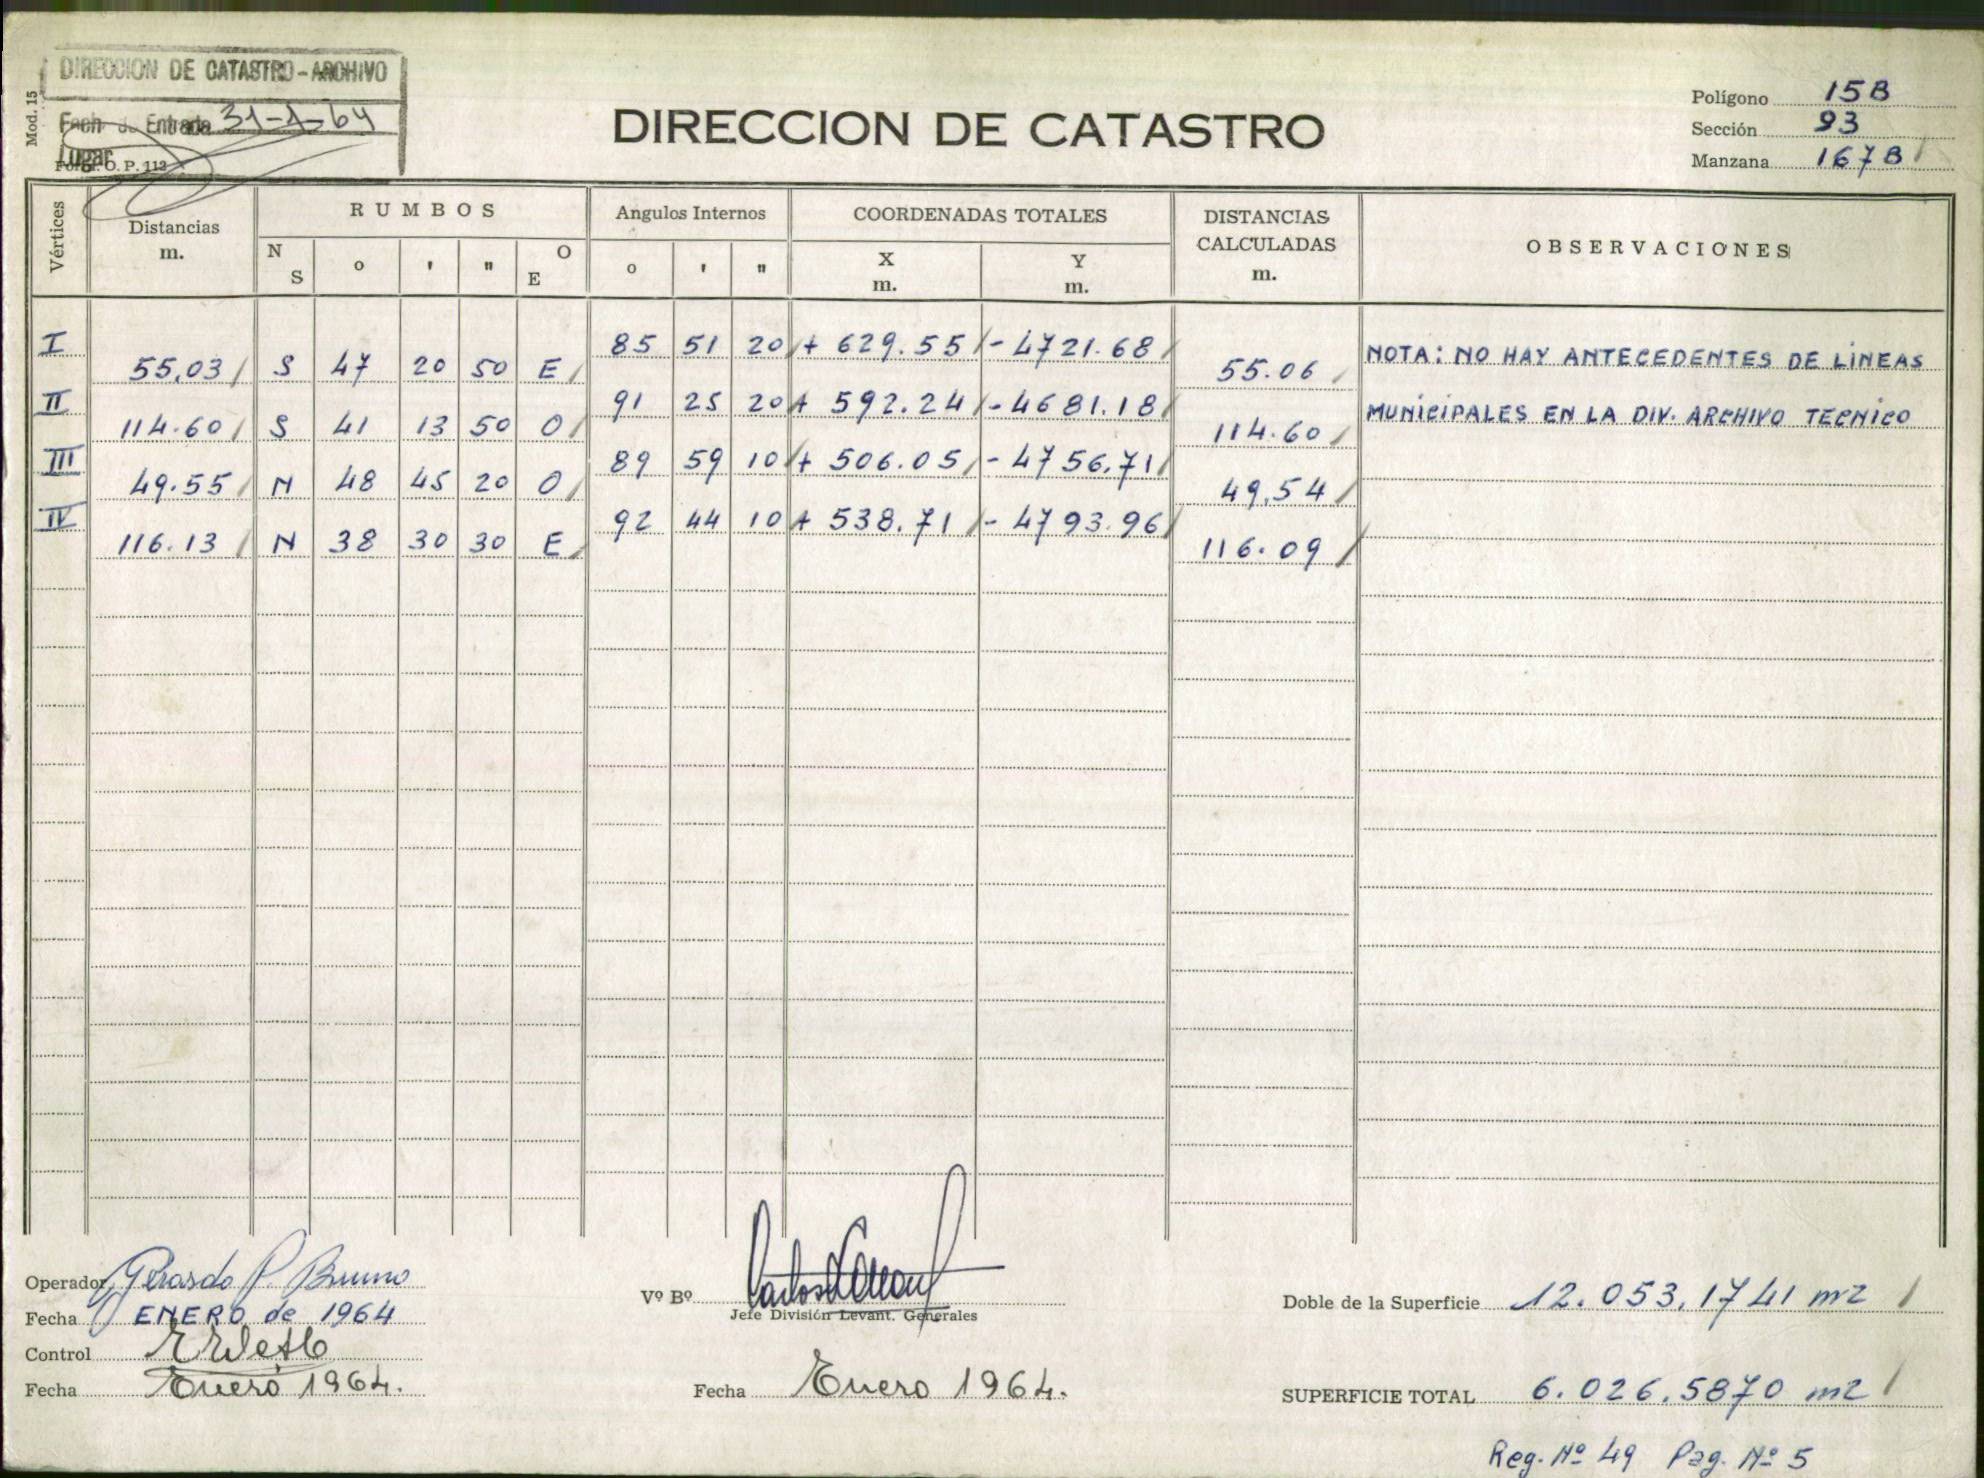 DIRECCION DE CATASTRO - ARCHIVO
Fech de Entrada 31-1-64
Lugar
Mod. 15
Form. O. P. 112
DIRECCION DE CATASTRO
Polígono 15B
Sección 93
Manzana 167B
Vértices Distancias m. RUMBOS Angulos Internos COORDENADAS TOTALES DISTANCIAS CALCULADAS m. OBSERVACIONES
N S o ' " O E o ' " X m. Y m.
I 85 51 20 + 629.55 - 4721.68 NOTA: NO HAY ANTECEDENTES DE LINEAS
55,03 S 47 20 50 E 55.06
II 91 25 20 + 592.24 - 4681.18 MUNICIPALES EN LA DIV. ARCHIVO TECNICO
114.60 S 41 13 50 O 114.60
III 89 59 10 + 506.05 - 4756,71
49.55 N 48 45 20 O 49,54
IV 92 44 10 + 538.71 - 4793.96
116.13 N 38 30 30 E 116.09
Operador Gerardo P. Bruno
Fecha ENERO de 1964
Control
Fecha Enero 1964.
Vº Bº
Jefe División Levant. Generales
Fecha Enero 1964.
Doble de la Superficie 12.053,1741 m2
SUPERFICIE TOTAL 6.026,5870 m2
Reg. Nº 49 Pag. Nº 5